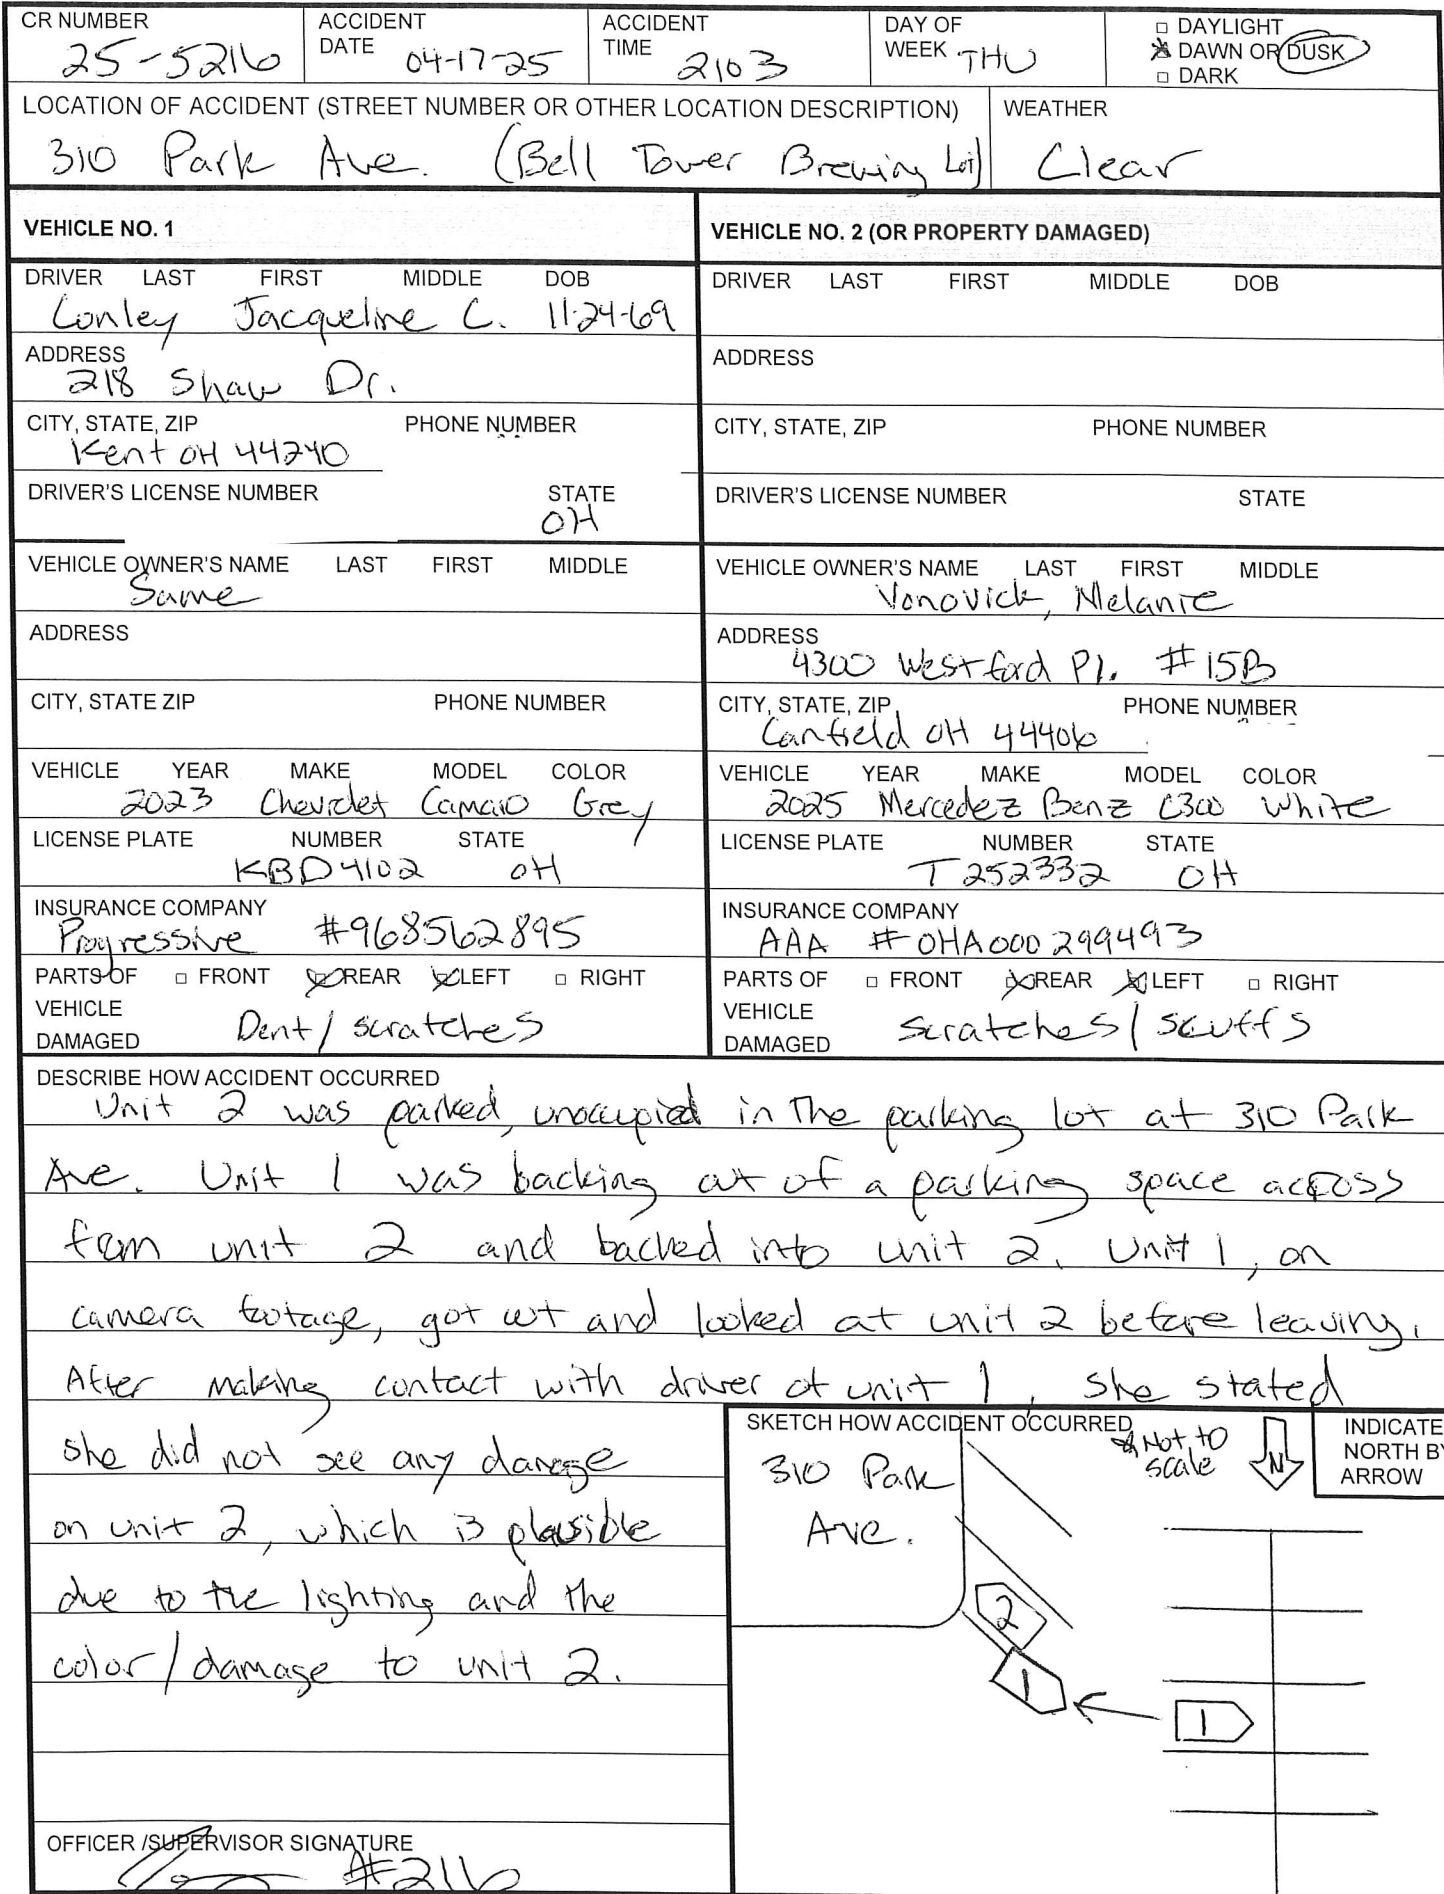 CR NUMBER 25-5216 ACCIDENT DATE 04-17-25 ACCIDENT TIME 2103 DAY OF WEEK THU
□ DAYLIGHT
DAWN OR DUSK
□ DARK
LOCATION OF ACCIDENT (STREET NUMBER OR OTHER LOCATION DESCRIPTION) WEATHER
310 Park Ave. (Bell Tower Brewing Lot) Clear
VEHICLE NO. 1
DRIVER LAST FIRST MIDDLE DOB
Conley Jacqueline C. 11-24-69
ADDRESS
218 Shaw Dr.
CITY, STATE, ZIP PHONE NUMBER
Kent OH 44240
DRIVER'S LICENSE NUMBER STATE
OH
VEHICLE OWNER'S NAME LAST FIRST MIDDLE
Same
ADDRESS
CITY, STATE ZIP PHONE NUMBER
VEHICLE YEAR MAKE MODEL COLOR
2023 Chevrolet Camaro Grey
LICENSE PLATE NUMBER STATE
KBD4102 OH
INSURANCE COMPANY
Progressive #968562895
PARTS OF □ FRONT REAR LEFT □ RIGHT
VEHICLE
DAMAGED Dent/scratches
VEHICLE NO. 2 (OR PROPERTY DAMAGED)
DRIVER LAST FIRST MIDDLE DOB
ADDRESS
CITY, STATE, ZIP PHONE NUMBER
DRIVER'S LICENSE NUMBER STATE
VEHICLE OWNER'S NAME LAST FIRST MIDDLE
Vonovick, Melanie
ADDRESS
4300 Westford Pl. #15B
CITY, STATE, ZIP PHONE NUMBER
Canfield OH 44406
VEHICLE YEAR MAKE MODEL COLOR
2025 Mercedez Benz C300 White
LICENSE PLATE NUMBER STATE
T252332 OH
INSURANCE COMPANY
AAA #OHA000299493
PARTS OF □ FRONT REAR LEFT □ RIGHT
VEHICLE
DAMAGED Scratches/scuffs
DESCRIBE HOW ACCIDENT OCCURRED
Unit 2 was parked, unoccupied in the parking lot at 310 Park
Ave. Unit 1 was backing out of a parking space across
from unit 2 and backed into unit 2. Unit 1, on
camera footage, got out and looked at unit 2 before leaving.
After making contact with driver of unit 1, she stated
she did not see any damage
on unit 2, which is plausible
due to the lighting and the
color/damage to unit 2.
OFFICER /SUPERVISOR SIGNATURE
#2116
SKETCH HOW ACCIDENT OCCURRED
* Not to
scale
N
INDICATE
NORTH BY
ARROW
310 Park
Ave.
2
1
1